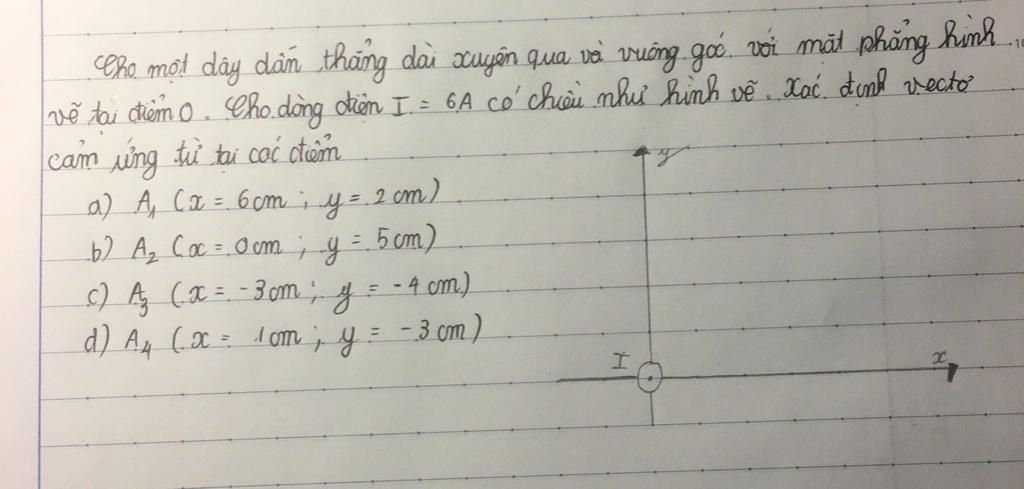 Cho một dây dẫn thẳng dài xuyên qua và vuông góc với mặt phẳng hình
vẽ tại điểm O. Cho dòng điện I = 6A có chiều như hình vẽ. Xác định vectơ
cảm ứng từ tại các điểm
y
a) A₁ (x = 6cm ; y = 2cm)
b) A₂ (x = 0cm ; y = 5cm)
c) A₃ (x = -3cm ; y = -4cm)
d) A₄ (x = 1cm ; y = -3cm)
I
x